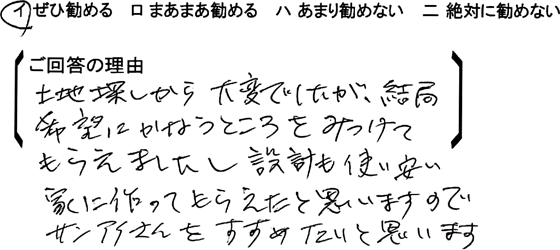 イ ぜひ勧める　ロ まあまあ勧める　ハ あまり勧めない　ニ 絶対に勧めない
ご回答の理由
土地探しから大変でしたが、結局
希望にかなうところをみつけて
もらえましたし設計も使い安い
家に作ってもらえたと思いますので
サンアイさんをすすめたいと思います